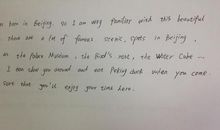 n born in Beijing. So I am very familiar with this beautiful
There are a lot of famous scenic spots in Beijing,
as the Palace Museum, the Bird's nest, the Water Cube
I can show you around and eat Peking duck when you come.
sure that you'll enjoy your time here.